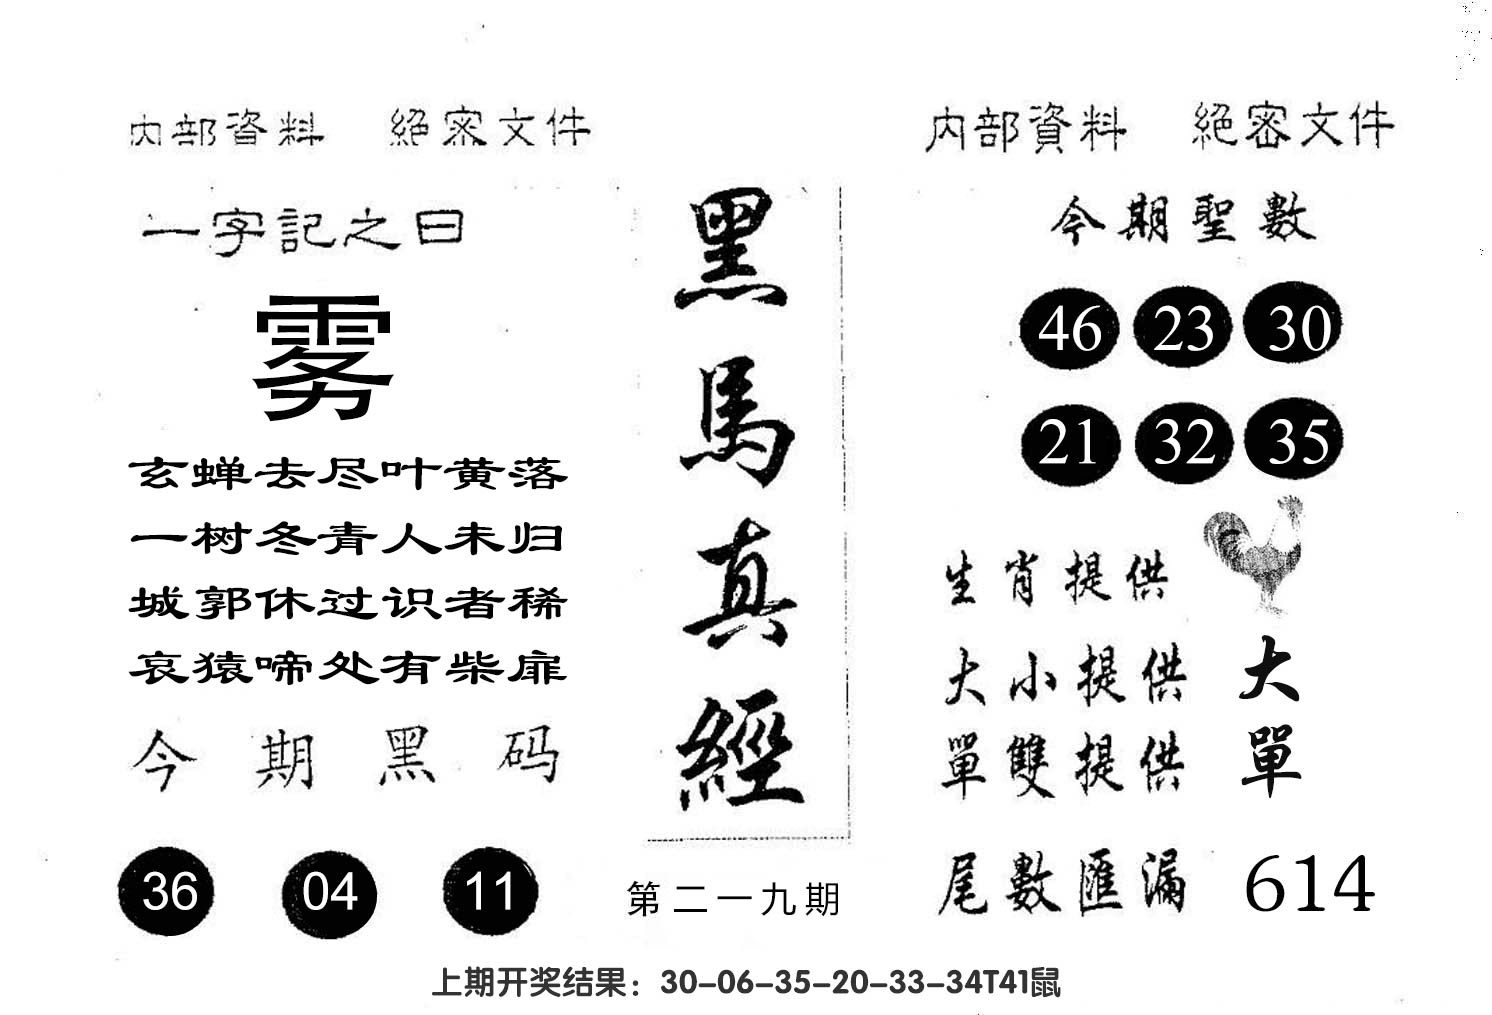 内部資料 絕密文件
一字記之曰
雾
玄蝉去尽叶黄落
一树冬青人未归
城郭休过识者稀
哀猿啼处有柴扉
今期黑码
36 04 11
黑馬真經
第二一九期
内部資料 絕密文件
今期聖數
46 23 30
21 32 35
生肖提供
大小提供 大
單雙提供 單
尾數匯漏 614
上期开奖结果：30-06-35-20-33-34T41鼠